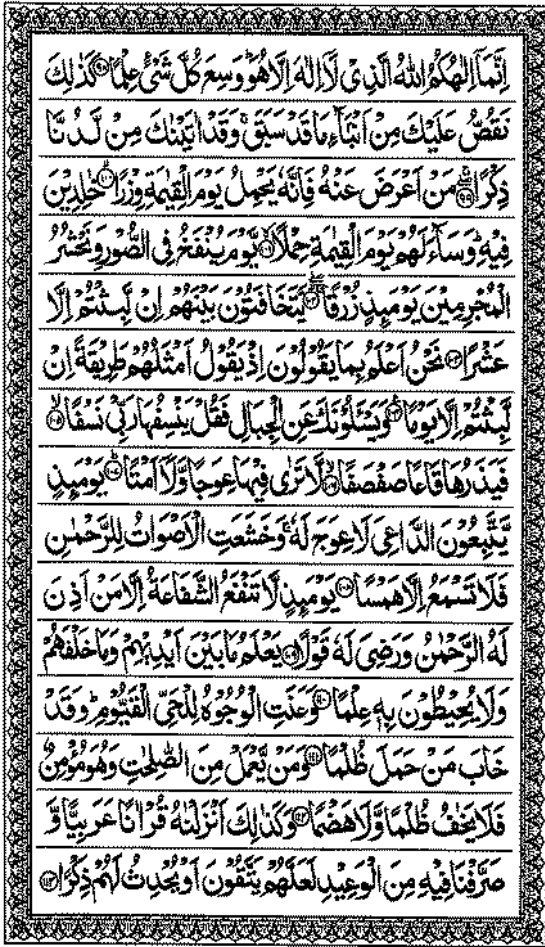 اِنَّمَآ اِلٰهُكُمُ اللّٰهُ الَّذِیْ لَاۤ اِلٰهَ اِلَّا هُوَؕ وَسِعَ كُلَّ شَیْءٍ عِلْمًا ﴿۹۸﴾ كَذٰلِكَ
نَقُصُّ عَلَیْكَ مِنْ اَنْۢبَآءِ مَا قَدْ سَبَقَۚ وَقَدْ اٰتَیْنٰكَ مِنْ لَّدُنَّا
ذِكْرًا ﴿۹۹﴾ مَنْ اَعْرَضَ عَنْهُ فَاِنَّهٗ یَحْمِلُ یَوْمَ الْقِیٰمَةِ وِزْرًا ﴿۱۰۰﴾ خٰلِدِیْنَ
فِیْهِؕ وَسَآءَ لَهُمْ یَوْمَ الْقِیٰمَةِ حِمْلًا ﴿۱۰۱﴾ یَّوْمَ یُنْفَخُ فِی الصُّوْرِ وَنَحْشُرُ
الْمُجْرِمِیْنَ یَوْمَىِٕذٍ زُرْقًا ﴿۱۰۲﴾ یَّتَخَافَتُوْنَ بَیْنَهُمْ اِنْ لَّبِثْتُمْ اِلَّا
عَشْرًا ﴿۱۰۳﴾ نَحْنُ اَعْلَمُ بِمَا یَقُوْلُوْنَ اِذْ یَقُوْلُ اَمْثَلُهُمْ طَرِیْقَةً اِنْ
لَّبِثْتُمْ اِلَّا یَوْمًا ﴿۱۰۴﴾ وَیَسْـَٔلُوْنَكَ عَنِ الْجِبَالِ فَقُلْ یَنْسِفُهَا رَبِّیْ نَسْفًا ﴿۱۰۵﴾
فَیَذَرُهَا قَاعًا صَفْصَفًا ﴿۱۰۶﴾ لَّا تَرٰی فِیْهَا عِوَجًا وَّلَاۤ اَمْتًا ﴿۱۰۷﴾ یَوْمَىِٕذٍ
یَّتَّبِعُوْنَ الدَّاعِیَ لَا عِوَجَ لَهٗۚ وَخَشَعَتِ الْاَصْوَاتُ لِلرَّحْمٰنِ
فَلَا تَسْمَعُ اِلَّا هَمْسًا ﴿۱۰۸﴾ یَوْمَىِٕذٍ لَّا تَنْفَعُ الشَّفَاعَةُ اِلَّا مَنْ اَذِنَ
لَهُ الرَّحْمٰنُ وَرَضِیَ لَهٗ قَوْلًا ﴿۱۰۹﴾ یَعْلَمُ مَا بَیْنَ اَیْدِیْهِمْ وَمَا خَلْفَهُمْ
وَلَا یُحِیْطُوْنَ بِهٖ عِلْمًا ﴿۱۱۰﴾ وَعَنَتِ الْوُجُوْهُ لِلْحَیِّ الْقَیُّوْمِؕ وَقَدْ
خَابَ مَنْ حَمَلَ ظُلْمًا ﴿۱۱۱﴾ وَمَنْ یَّعْمَلْ مِنَ الصّٰلِحٰتِ وَهُوَ مُؤْمِنٌ
فَلَا یَخٰفُ ظُلْمًا وَّلَا هَضْمًا ﴿۱۱۲﴾ وَكَذٰلِكَ اَنْزَلْنٰهُ قُرْاٰنًا عَرَبِیًّا وَّ
صَرَّفْنَا فِیْهِ مِنَ الْوَعِیْدِ لَعَلَّهُمْ یَتَّقُوْنَ اَوْ یُحْدِثُ لَهُمْ ذِكْرًا ﴿۱۱۳﴾